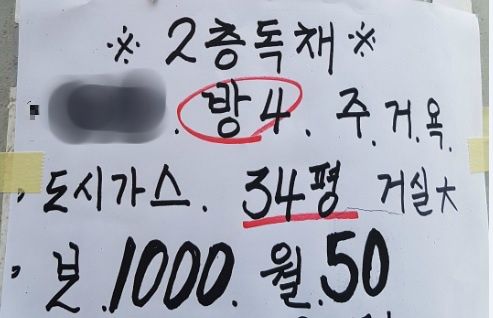 ※2층독채※
. 방4. 주.거.욕.
, 도시가스. 34평 거실大
, 봇.1000. 월.50